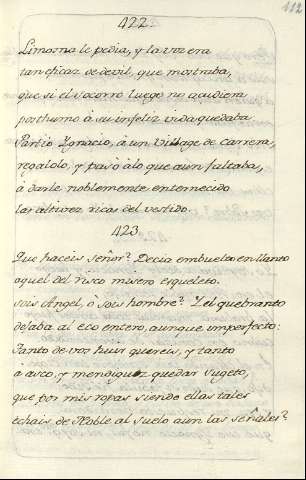 112
422.
Limosna le pedia, y la voz era
tan eficaz de devil, que mostraba,
que si el socorro luego no acudiera
posthumo à su infeliz vida quedaba
Partio Ygnacio, à un Village de carrera,
regalolo, y pasò àlo que aun faltaba,
à darle noblemente enternecido
las altivezes ricas del vestido.
423
Que haceis señor? Decia embuelto en llanto
aquel del risco misero esqueleto.
sois Angel, ò sois hombre? Y el quebranto
dejaba al eco entero, aunque imperfecto:
Tanto de vos huir quereis, y tanto
à asco, y mendiguez quedar sugeto,
que por mis ropas siendo ellas tales
echais de Noble al suelo aun las señales?